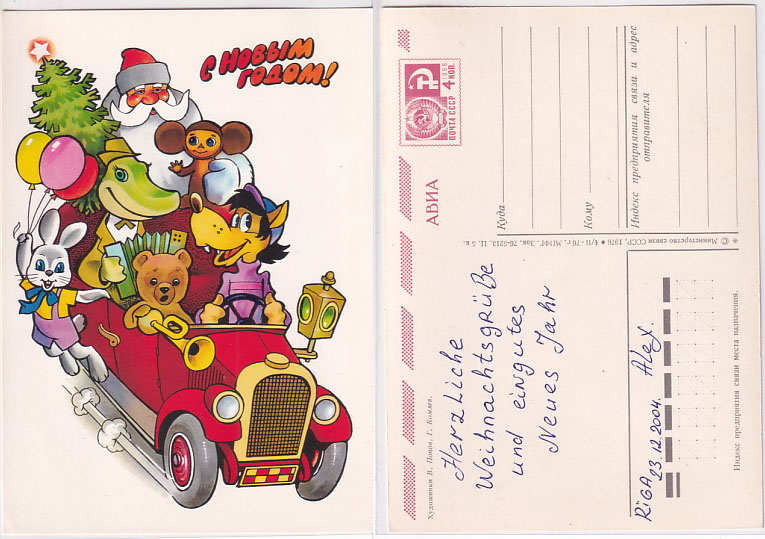 С НОВЫМ
ГОДОМ!
1966
4 КОП.
ПОЧТА СССР
АВИА
Куда
Кому
Индекс предприятия связи и адрес
отправителя
© Министерство связи СССР, 1976
Herzliche
Weihnachtsgrüße
und ein gutes
Neues Jahr
Художники В. Попов, Г. Комлев.
RiGA
23.12.2004. Alex
Индекс предприятия связи места назначения.